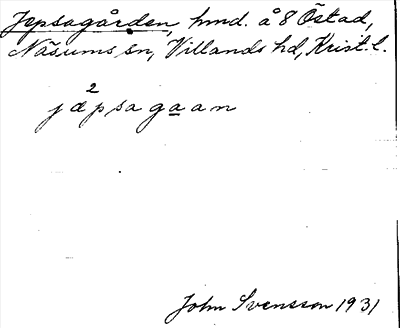 Jepsagården, hmd. å 8 Östad,
Näsums sn, Villands hd, Krist. l.
2
jæpsagaan
John Svensson 1931